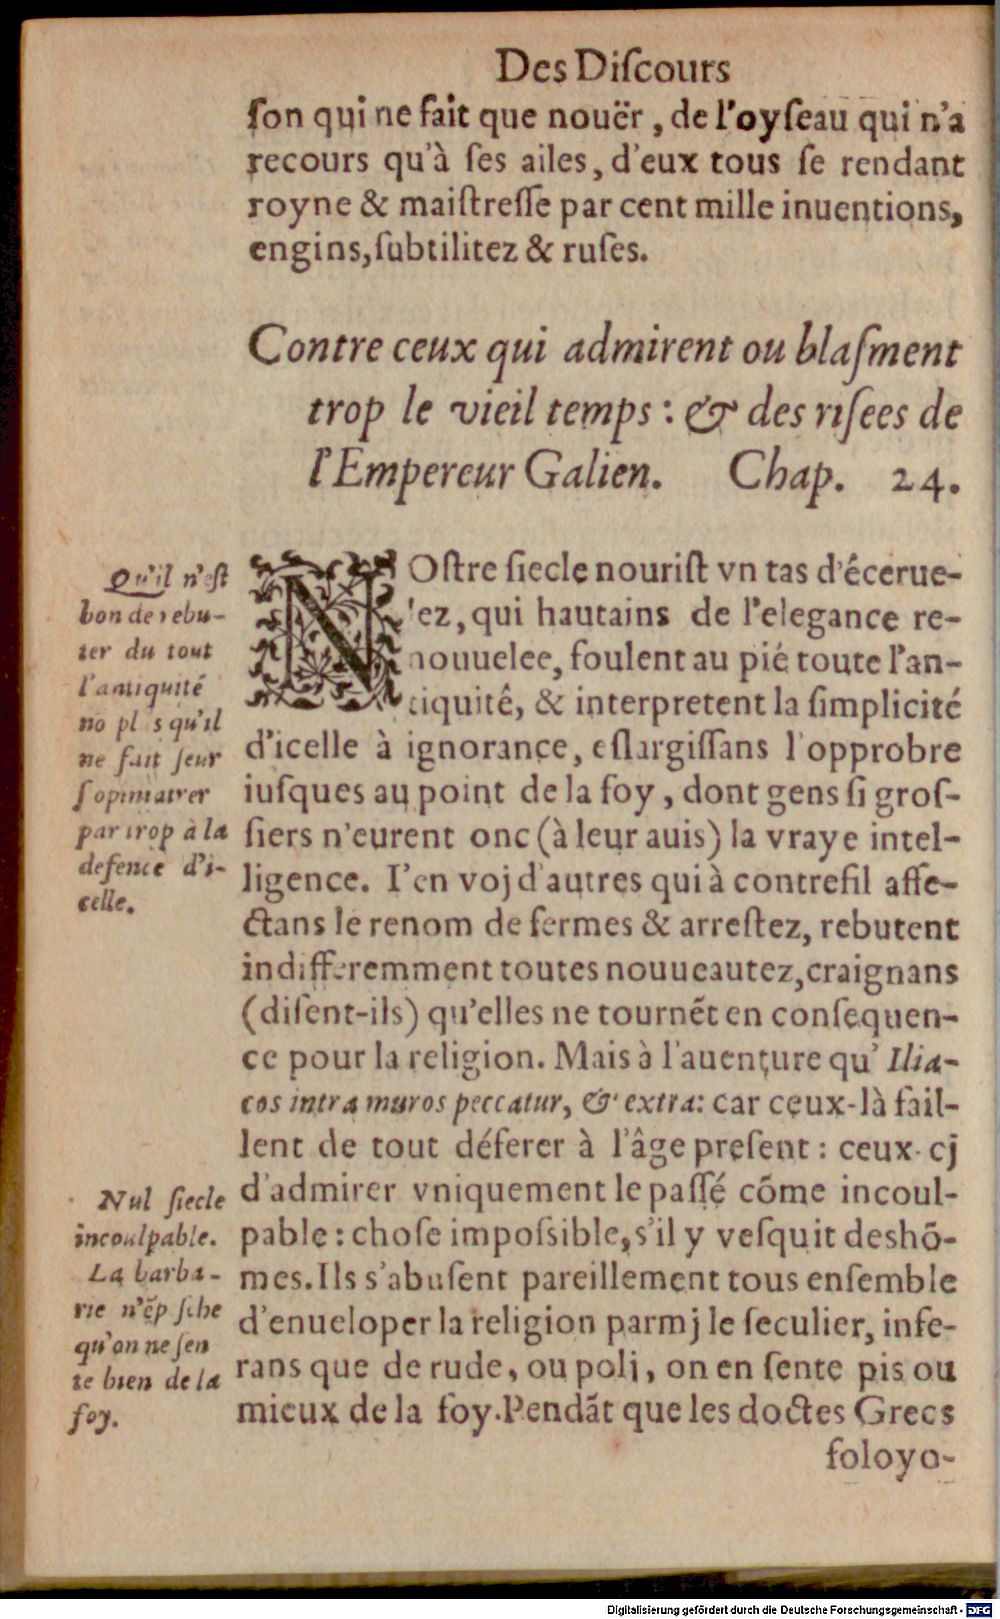 Des Diſcours
ſon qui ne fait que nouër, de l'oyſeau qui n'a
recours qu'à ſes ailes, d'eux tous ſe rendant
royne & maiſtreſſe par cent mille inuentions,
engins, ſubtilitez & ruſes.
Contre ceux qui admirent ou blaſment
trop le vieil temps : & des riſees de
l'Empereur Galien. Chap. 24.
Qu'il n'eſt
bon de rebu-
ter du tout
l'antiquité
no pl s qu'il
ne fait ſeur
ſ'opiniatrer
par trop à la
defence d'i-
celle.
NOſtre ſiecle nouriſt vn tas d'écerue-
lez, qui hautains de l'elegance re-
nouuelee, foulent au pié toute l'an-
tiquité, & interpretent la ſimplicité
d'icelle à ignorance, eſlargiſſans l'opprobre
iuſques au point de la foy, dont gens ſi groſ-
ſiers n'eurent onc (à leur auis) la vraye intel-
ligence. I'en voj d'autres qui à contrefil affe-
ctans le renom de fermes & arreſtez, rebutent
indifferemment toutes nouueautez, craignans
(diſent-ils) qu'elles ne tournẽt en conſequen-
ce pour la religion. Mais à l'auenture qu' Ilia-
cos intra muros peccatur, & extra: car ceux-là fail-
lent de tout déferer à l'âge preſent : ceux-cj
d'admirer vniquement le paſſé cõme incoul-
pable : choſe impoſsible, s'il y veſquit des hõ-
mes. Ils s'abuſent pareillement tous enſemble
d'enueloper la religion parmj le ſeculier, infe-
rans que de rude, ou poli, on en ſente pis ou
mieux de la foy. Pendãt que les doctes Grecs
foloyo-
Nul ſiecle
incoulpable.
La barba-
rie n'ẽp ſche
qu'on ne ſen
te bien de la
foy.
Digitalisierung gefördert durch die Deutsche Forschungsgemeinschaft - DFG